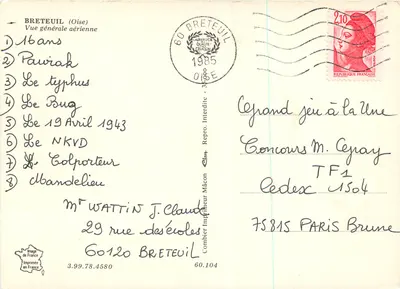 BRETEUIL (Oise)
Vue générale aérienne
1) 16 ans
2) Pawiak
3) Le typhus
4) Le Bug
5) Le 19 Avril 1943
6) Le NKVD
7) Le Colporteur
8) Mandelieu
Mr WATTIN J. Claud
29 rue des écoles
60120 BRETEUIL
Image de France
Imprimée en France
3.99.78.4580
60.104
Combier Imprimeur Mâcon
Repro. Interdite
60 BRETEUIL
1985
OISE
2,10
REPUBLIQUE FRANÇAISE
Grand jeu à la Une
Concours M. Cgray
TF1
Cedex 1504
75815 PARIS Brune